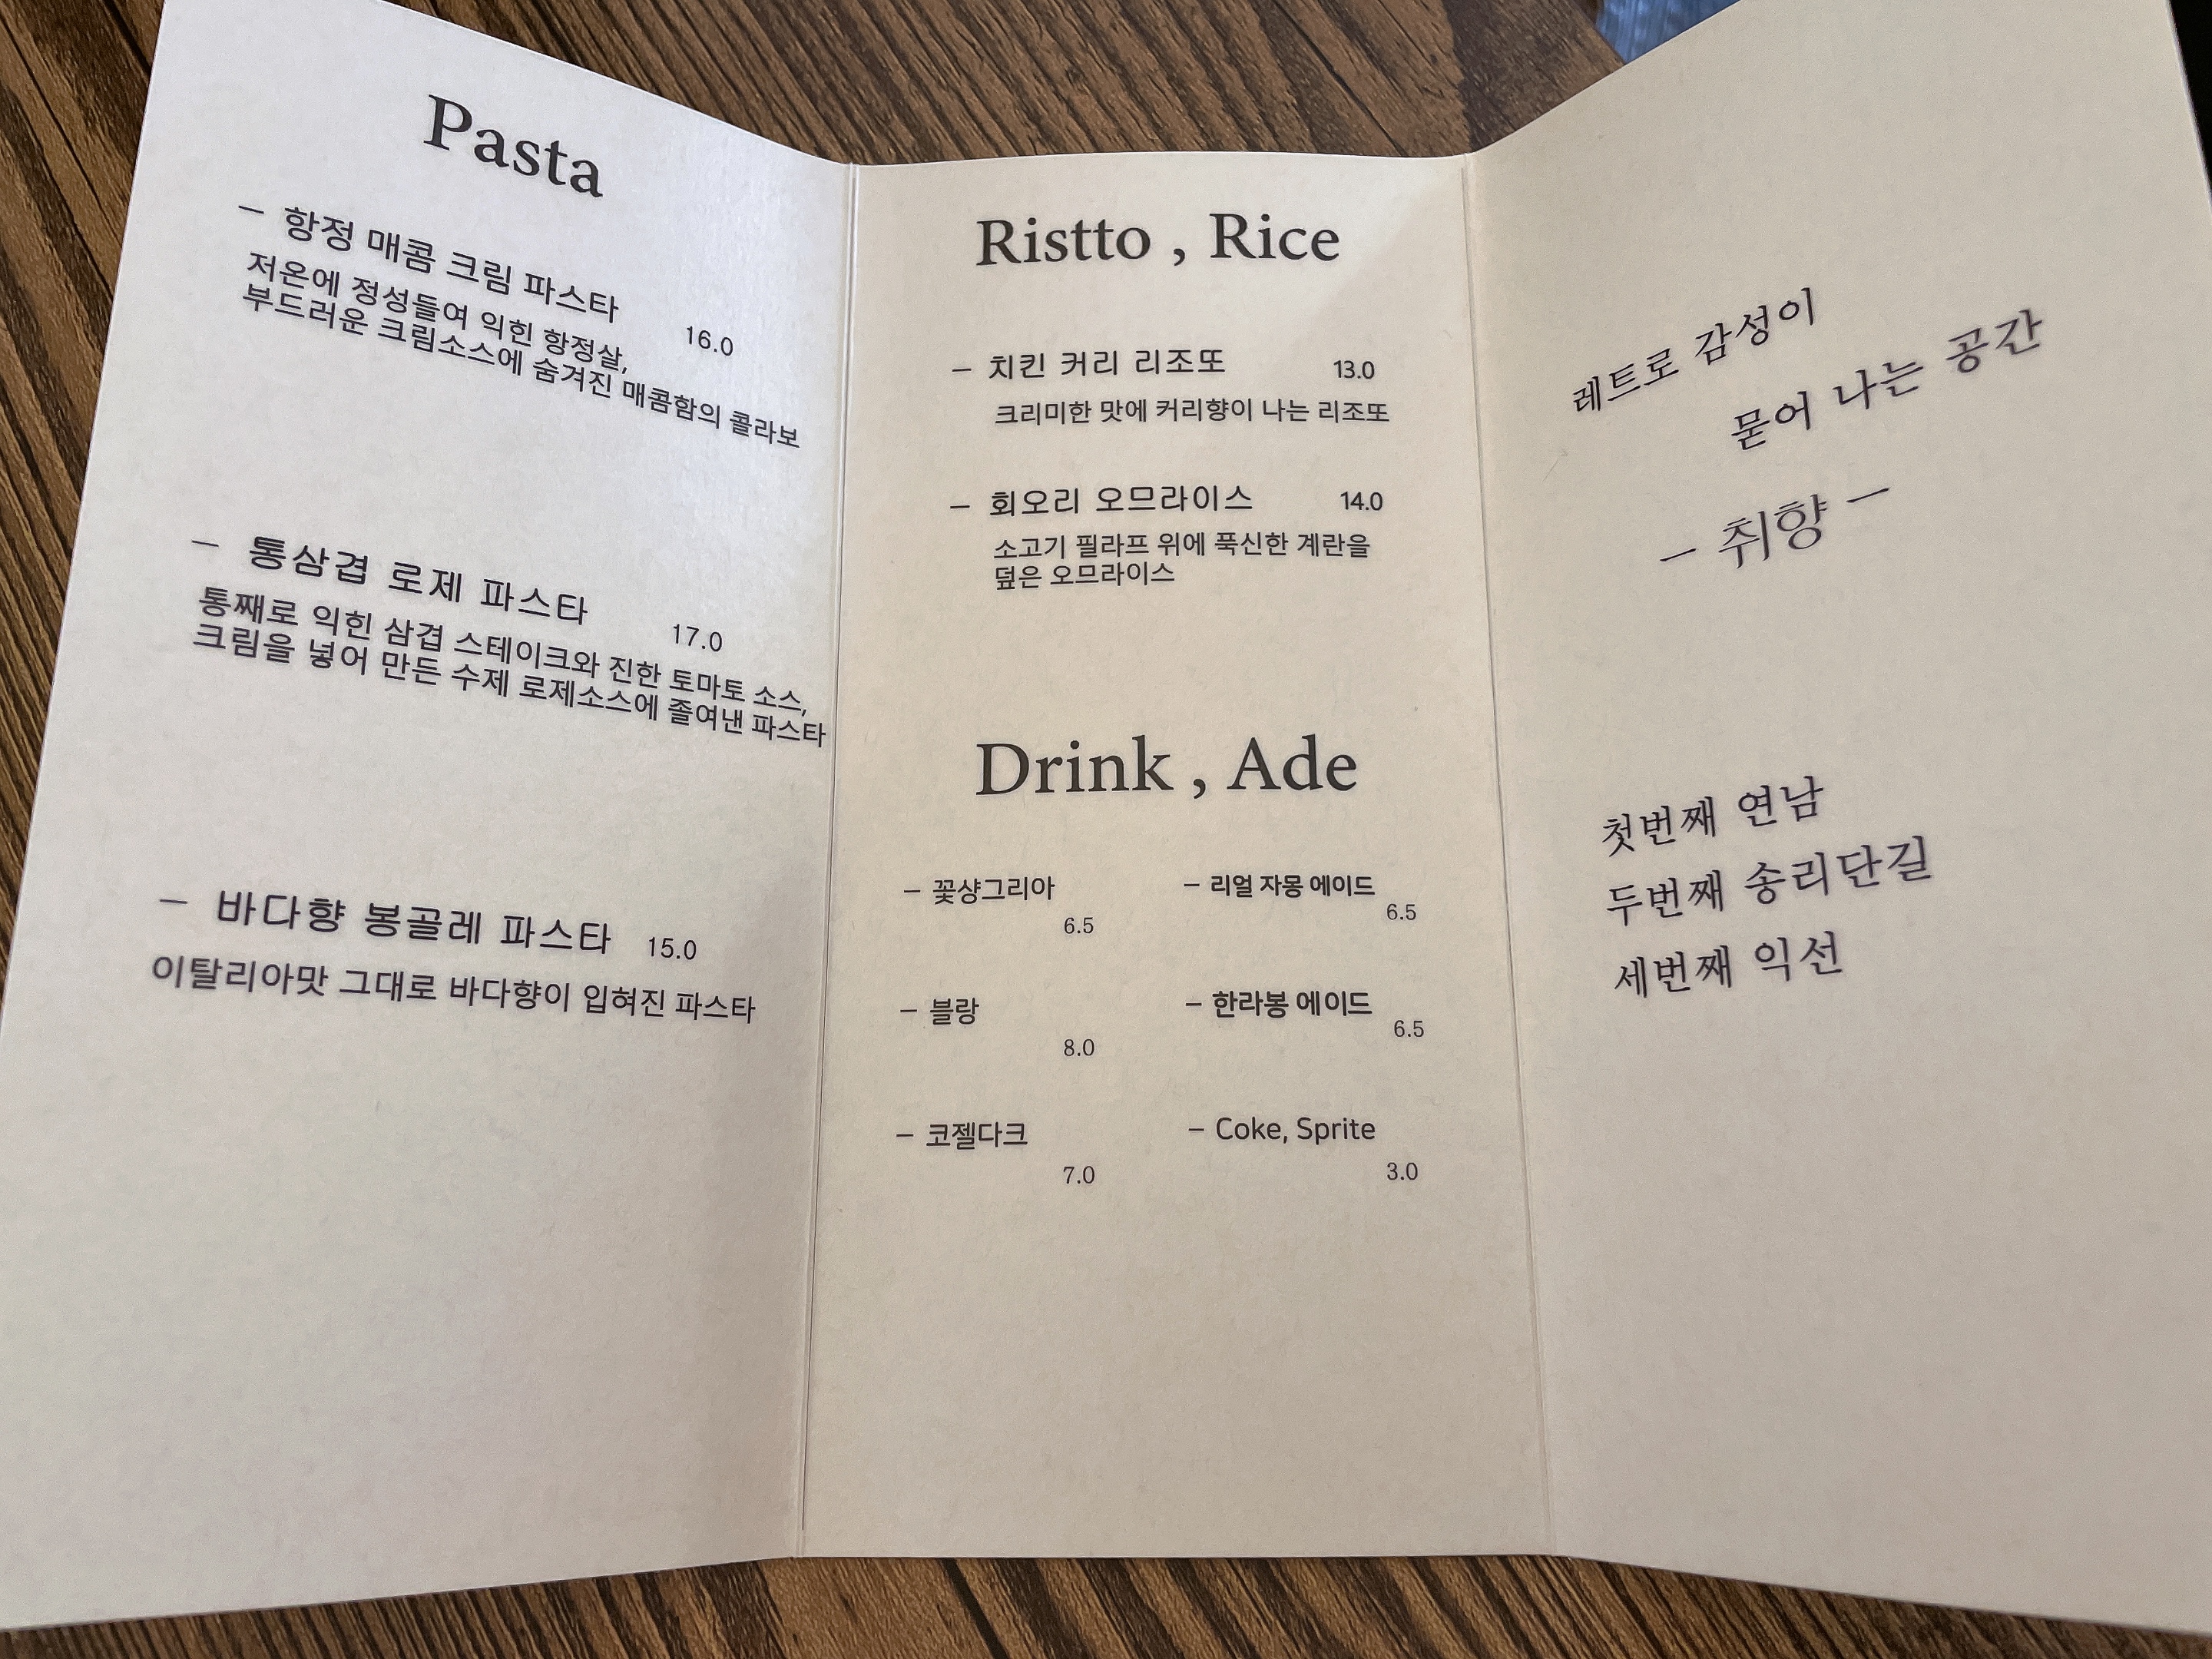 Pasta
– 항정 매콤 크림 파스타 16.0
저온에 정성들여 익힌 항정살,
부드러운 크림소스에 숨겨진 매콤함의 콜라보
– 통삼겹 로제 파스타 17.0
통째로 익힌 삼겹 스테이크와 진한 토마토 소스,
크림을 넣어 만든 수제 로제소스에 졸여낸 파스타
– 바다향 봉골레 파스타 15.0
이탈리아맛 그대로 바다향이 입혀진 파스타
Ristto , Rice
– 치킨 커리 리조또 13.0
크리미한 맛에 커리향이 나는 리조또
– 회오리 오므라이스 14.0
소고기 필라프 위에 푹신한 계란을
덮은 오므라이스
Drink , Ade
– 꽃샹그리아
6.5
– 블랑
8.0
– 코젤다크
7.0
– 리얼 자몽 에이드
6.5
– 한라봉 에이드
6.5
– Coke, Sprite
3.0
레트로 감성이
묻어 나는 공간
– 취향 –
첫번째 연남
두번째 송리단길
세번째 익선